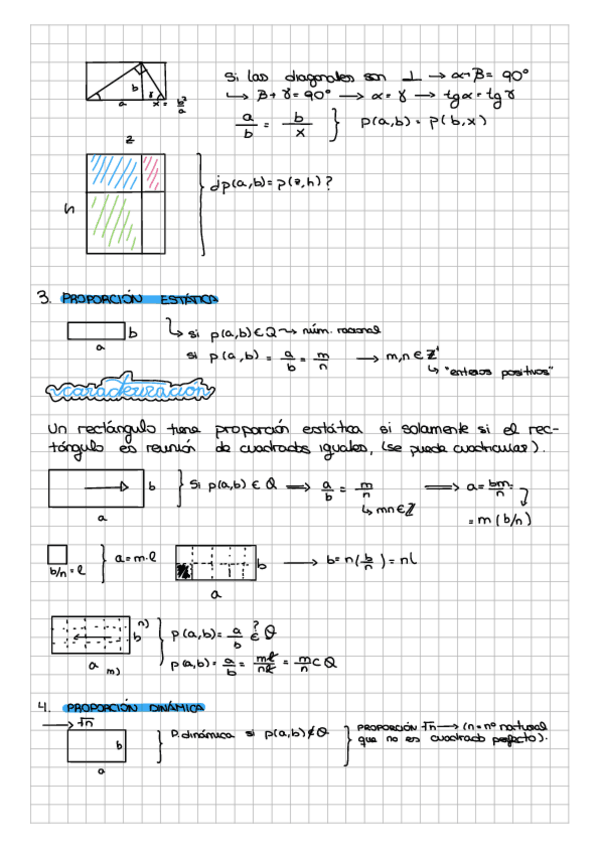 Si las diagonales son ⊥ → α+β= 90°
↳ β+γ=90° → α=γ → tgα=tgγ
b
γ
a
x = b²/a
a/b = b/x } p(a,b) = p(b,x)
z
h
¿p(a,b)=p(z,h)?
3. PROPORCIÓN ESTÁTICA
b
a
↳ si p(a,b)∈Q → núm. racional
si p(a,b) = a/b = m/n → m,n∈Z⁺
↳ "enteros positivos"
caracterización
Un rectángulo tiene proporción estática si solamente si el rec-
tángulo es reunión de cuadrados iguales, (se puede cuadricular).
b
a
Si p(a,b)∈Q ⟹ a/b = m/n ⟹ a = bm/n
↳ mn∈Z
= m(b/n)
b/n = l
a=m·l
b
a
→ b= n(b/n) = nl
n)
b
a
m)
p(a,b)= a/b ?∈ Q
p(a,b)= a/b = ml/nl = m/n ⊂ Q
4. PROPORCIÓN DINÁMICA
→ √n
b
a
P. dinámica si p(a,b)∉Q
PROPORCIÓN √n → (n = nº natural
que no es cuadrado perfecto).